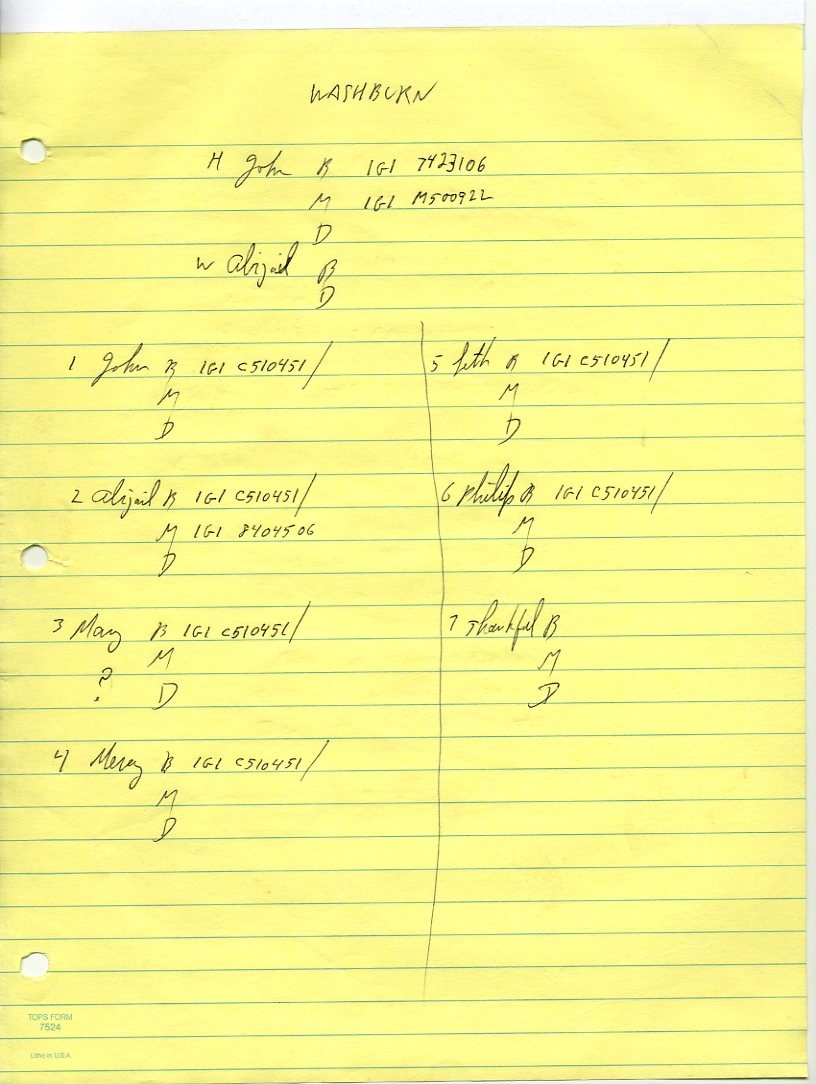 WASHBURN
H John B IGI 7423106
M IGI M500922
D
W Abigail B
D
1 John B IGI C510451/
M
D
2 Abigail B IGI C510451/
M IGI 8404506
D
3 Mary B IGI C510451/
M
? D
4 Mercy B IGI C510451/
M
D
5 Seth B IGI C510451/
M
D
6 Philip B IGI C510451/
M
D
7 Thankful B
M
D
TOPS FORM
7524
Litho in U.S.A.